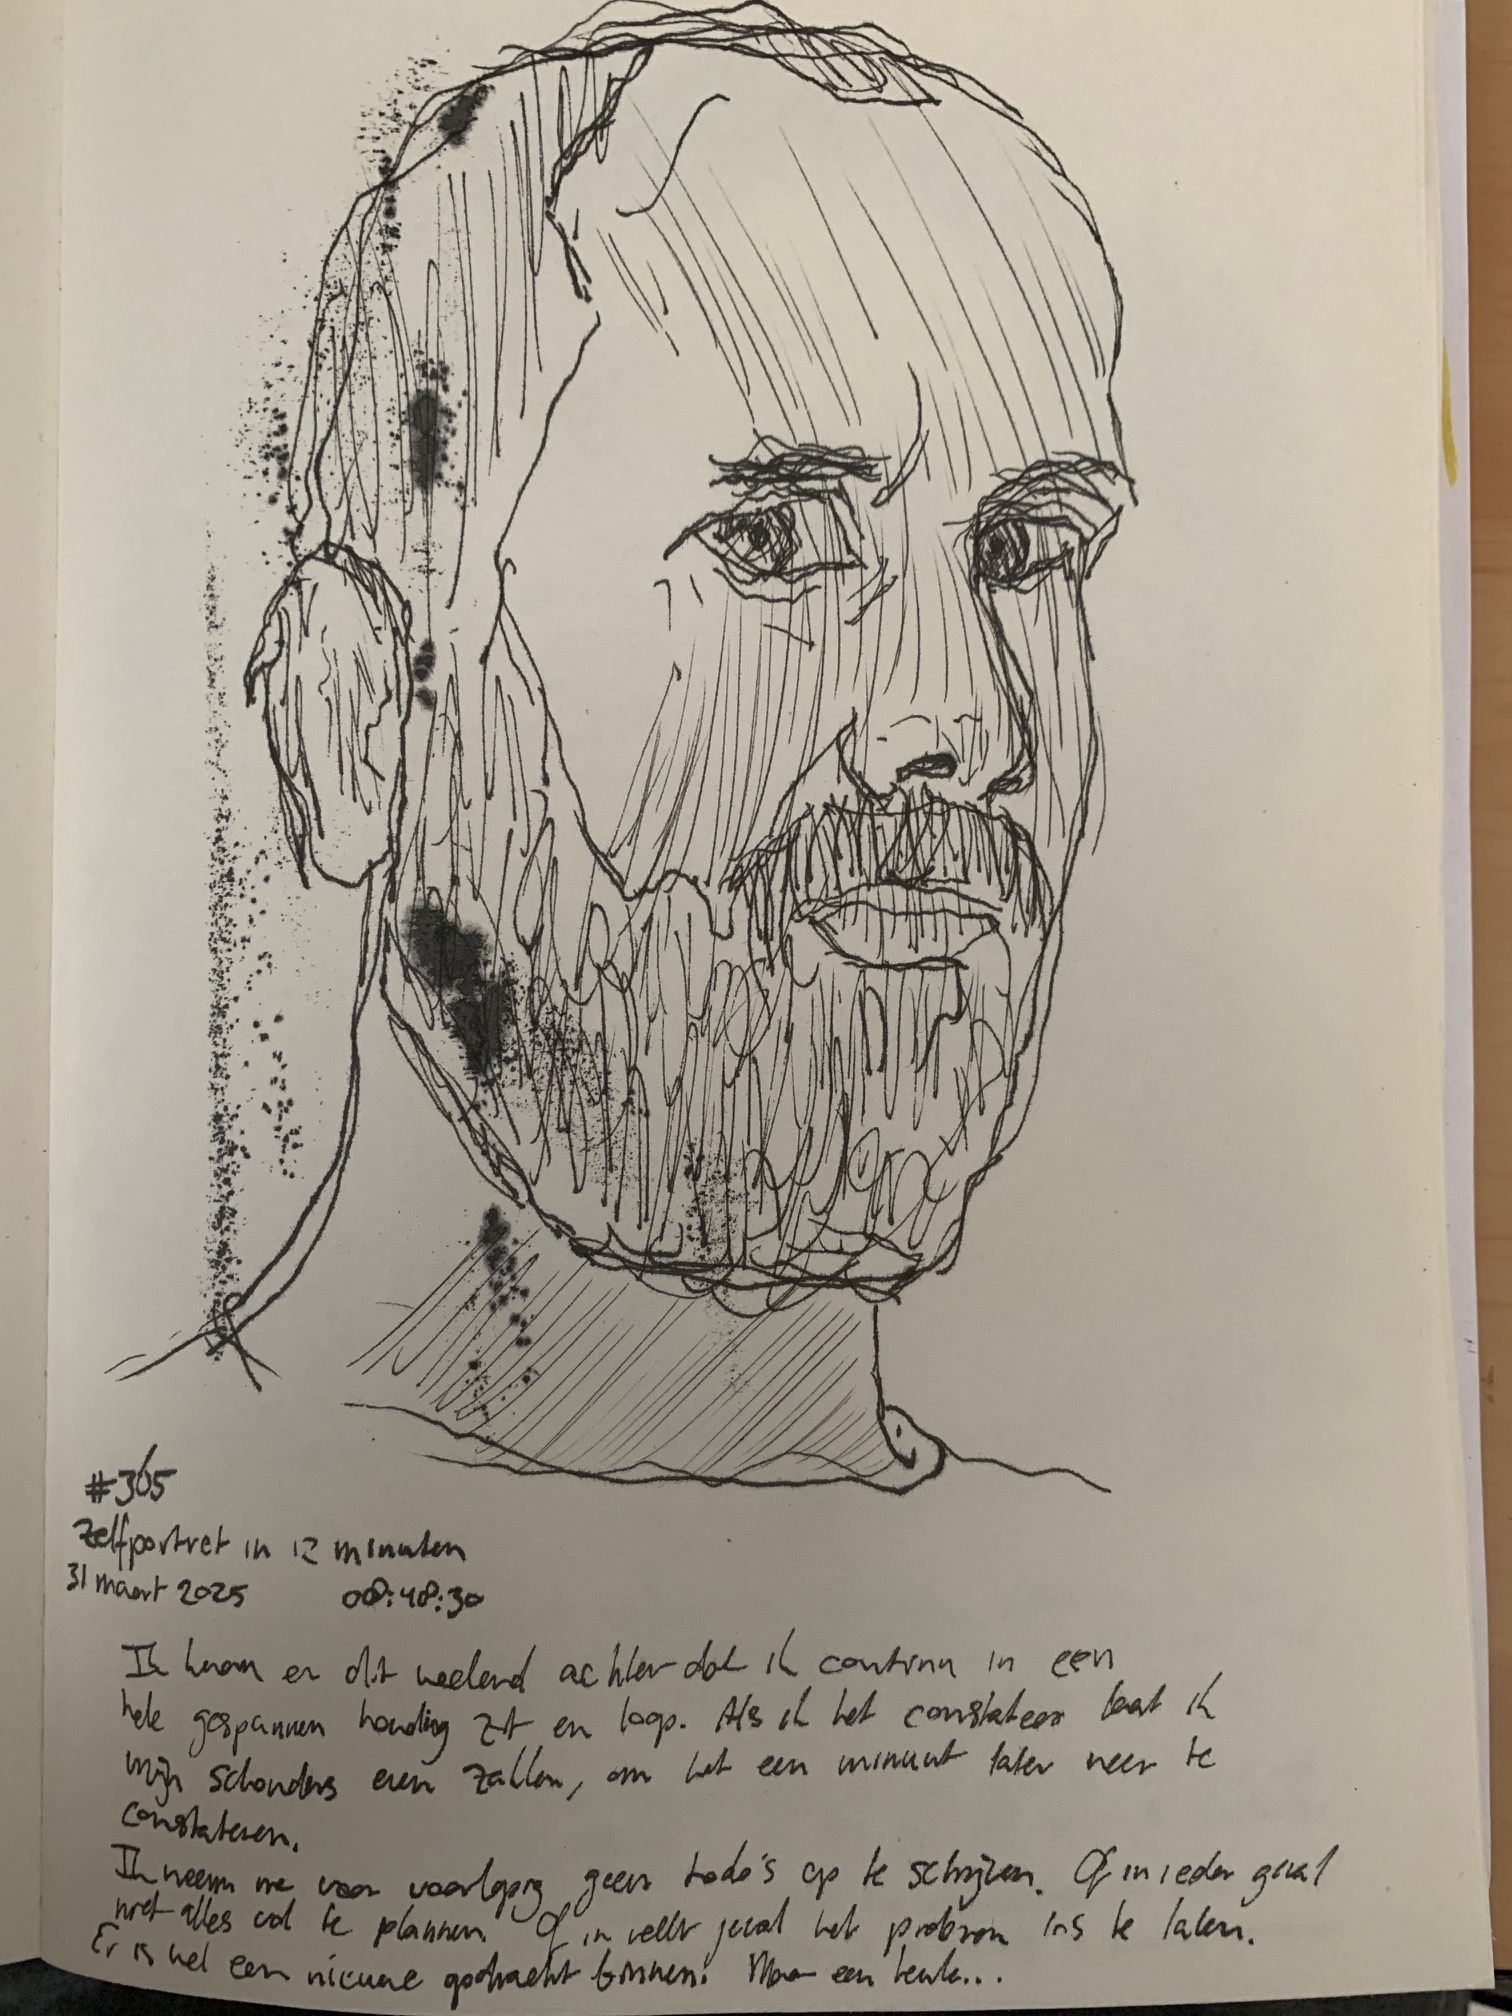 #365
Zelfportret in 12 minuten
31 maart 2025 08:48:30
Ik kwam er dit weekend achter dat ik continu in een
hele gespannen houding zit en loop. Als ik het constateer laat ik
mijn schouders even zakken, om het een minuut later weer te
constateren.
Ik neem me voor voorlopig geen todo's op te schrijven. Of in ieder geval
niet alles vol te plannen. Of in geval het los te laten.
Er is wel een nieuwe opdracht binnen. Maar een leuke...